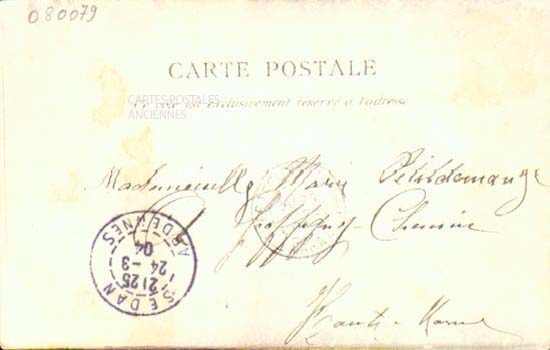 080079
CARTE POSTALE
Ce côté est exclusivement réservé à l'adresse
CARTES POSTALES
ANCIENNES
Mademoiselle Marie Petitdemange
à Chemin
Haute-Marne
SEDAN
21 25
24 - 3
04
ARDENNES